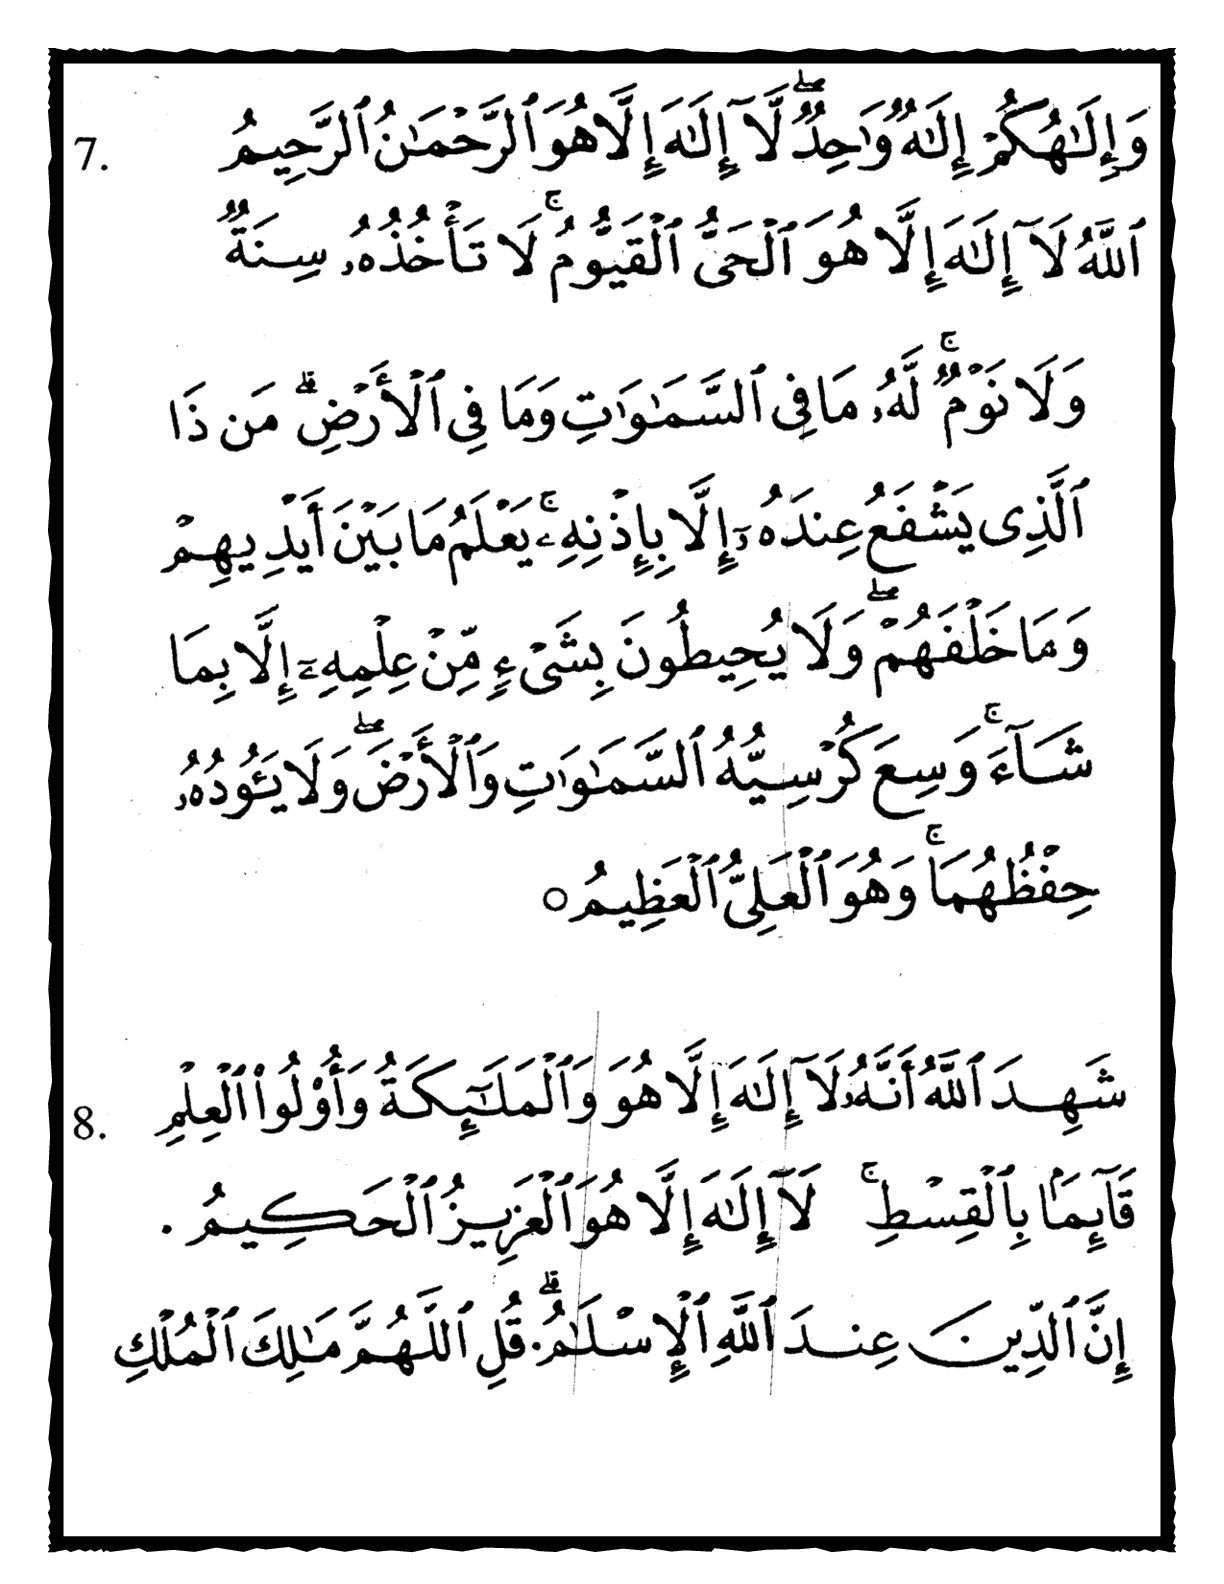 7. وَإِلَٰهُكُمْ إِلَٰهٌ وَٰحِدٌ ۖ لَّآ إِلَٰهَ إِلَّا هُوَ ٱلرَّحْمَٰنُ ٱلرَّحِيمُ
ٱللَّهُ لَآ إِلَٰهَ إِلَّا هُوَ ٱلْحَىُّ ٱلْقَيُّومُ ۚ لَا تَأْخُذُهُۥ سِنَةٌ
وَلَا نَوْمٌ ۚ لَّهُۥ مَا فِى ٱلسَّمَٰوَٰتِ وَمَا فِى ٱلْأَرْضِ ۗ مَن ذَا
ٱلَّذِى يَشْفَعُ عِندَهُۥٓ إِلَّا بِإِذْنِهِۦ ۚ يَعْلَمُ مَا بَيْنَ أَيْدِيهِمْ
وَمَا خَلْفَهُمْ ۖ وَلَا يُحِيطُونَ بِشَىْءٍ مِّنْ عِلْمِهِۦٓ إِلَّا بِمَا
شَآءَ ۚ وَسِعَ كُرْسِيُّهُ ٱلسَّمَٰوَٰتِ وَٱلْأَرْضَ ۖ وَلَا يَـُٔودُهُۥ
حِفْظُهُمَا ۚ وَهُوَ ٱلْعَلِىُّ ٱلْعَظِيمُ ○
8. شَهِدَ ٱللَّهُ أَنَّهُۥ لَآ إِلَٰهَ إِلَّا هُوَ وَٱلْمَلَٰٓئِكَةُ وَأُوْلُوا۟ ٱلْعِلْمِ
قَآئِمًۢا بِٱلْقِسْطِ ۚ لَآ إِلَٰهَ إِلَّا هُوَ ٱلْعَزِيزُ ٱلْحَكِيمُ .
إِنَّ ٱلدِّينَ عِندَ ٱللَّهِ ٱلْإِسْلَٰمُ ۗ . قُلِ ٱللَّهُمَّ مَٰلِكَ ٱلْمُلْكِ